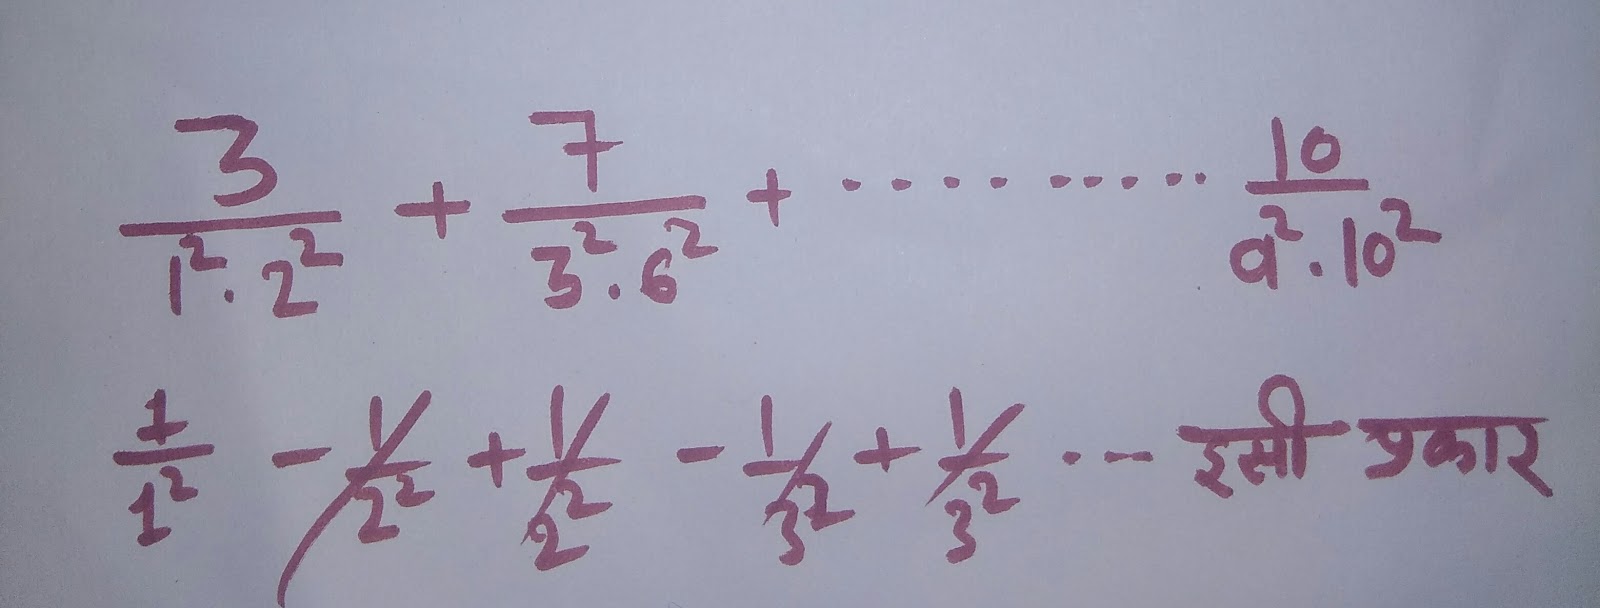 3/1².2² + 7/3².6² + ............ 10/9².10²
1/1² - 1/2² + 1/2² - 1/3² + 1/3² ... इसी प्रकार